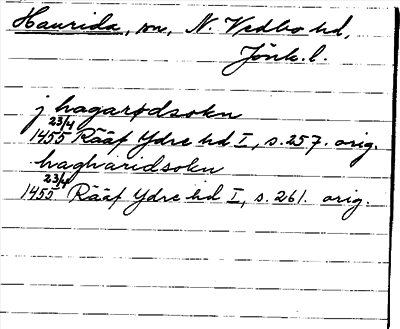 Haurida, sn, N. Vedbo hd,
Jönk. l.
j hagarødsokn
23/4
1455 Rääf Ydre hd I, s. 257. orig.
hagharidsokn
23/4
1455 Rääf Ydre hd I, s. 261. orig.